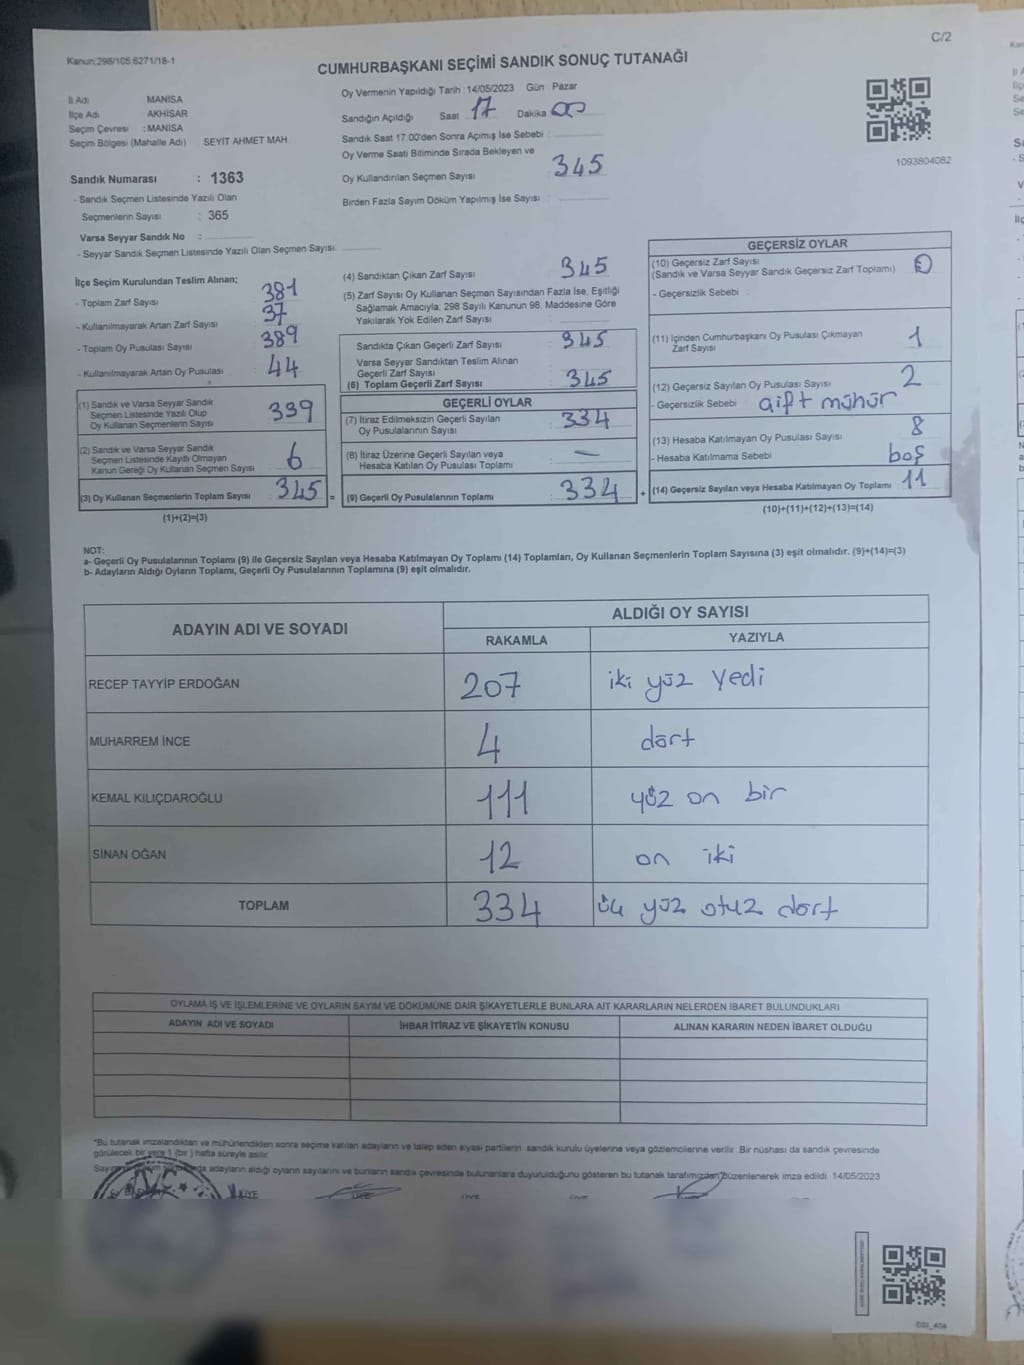 C/2
Kanun:298/105.6271/18-1
CUMHURBAŞKANI SEÇİMİ SANDIK SONUÇ TUTANAĞI
İl Adı MANİSA
İlçe Adı AKHİSAR
Seçim Çevresi : MANİSA
Seçim Bölgesi (Mahalle Adı) SEYİT AHMET MAH
Sandık Numarası : 1363
- Sandık Seçmen Listesinde Yazılı Olan
Seçmenlerin Sayısı : 365
Varsa Seyyar Sandık No :
- Seyyar Sandık Seçmen Listesinde Yazılı Olan Seçmen Sayısı:
Oy Vermenin Yapıldığı Tarih : 14/05/2023 Gün Pazar
Sandığın Açıldığı Saat 17 Dakika 00
Sandık Saat 17.00'den Sonra Açımış İse Sebebi :
Oy Verme Saati Bitiminde Sırada Bekleyen ve
Oy Kullandırılan Seçmen Sayısı : 345
Birden Fazla Sayım Döküm Yapılmış İse Sayısı :
1093804082
İlçe Seçim Kurulundan Teslim Alınan;
- Toplam Zarf Sayısı : 381
- Kullanılmayarak Artan Zarf Sayısı : 37
- Toplam Oy Pusulası Sayısı : 389
- Kullanılmayarak Artan Oy Pusulası : 44
(1) Sandık ve Varsa Seyyar Sandık
Seçmen Listesinde Yazılı Olup
Oy Kullanan Seçmenlerin Sayısı : 339
(2) Sandık ve Varsa Seyyar Sandık
Seçmen Listesinde Kayıtlı Olmayan
Kanun Gereği Oy Kullanan Seçmen Sayısı : 6
(3) Oy Kullanan Seçmenlerin Toplam Sayısı : 345 =
(1)+(2)=(3)
(4) Sandıktan Çıkan Zarf Sayısı : 345
(5) Zarf Sayısı Oy Kullanan Seçmen Sayısından Fazla İse, Eşitliği
Sağlamak Amacıyla, 298 Sayılı Kanunun 98. Maddesine Göre
Yakılarak Yok Edilen Zarf Sayısı :
Sandıkta Çıkan Geçerli Zarf Sayısı : 345
Varsa Seyyar Sandıktan Teslim Alınan
Geçerli Zarf Sayısı :
(6) Toplam Geçerli Zarf Sayısı : 345
GEÇERLİ OYLAR
(7) İtiraz Edilmeksizin Geçerli Sayılan
Oy Pusulalarının Sayısı : 334
(8) İtiraz Üzerine Geçerli Sayılan veya
Hesaba Katılan Oy Pusulası Toplamı : —
(9) Geçerli Oy Pusulalarının Toplamı : 334 +
GEÇERSİZ OYLAR
(10) Geçersiz Zarf Sayısı
(Sandık ve Varsa Seyyar Sandık Geçersiz Zarf Toplamı) : 0
- Geçersizlik Sebebi :
(11) İçinden Cumhurbaşkanı Oy Pusulası Çıkmayan
Zarf Sayısı : 1
(12) Geçersiz Sayılan Oy Pusulası Sayısı : 2
- Geçersizlik Sebebi : çift mühür
(13) Hesaba Katılmayan Oy Pusulası Sayısı : 8
- Hesaba Katılmama Sebebi : boş
(14) Geçersiz Sayılan veya Hesaba Katılmayan Oy Toplamı : 11
(10)+(11)+(12)+(13)=(14)
NOT:
a- Geçerli Oy Pusulalarının Toplamı (9) ile Geçersiz Sayılan veya Hesaba Katılmayan Oy Toplamı (14) Toplamları, Oy Kullanan Seçmenlerin Toplam Sayısına (3) eşit olmalıdır. (9)+(14)=(3)
b- Adayların Aldığı Oyların Toplamı, Geçerli Oy Pusulalarının Toplamına (9) eşit olmalıdır.
ADAYIN ADI VE SOYADI ALDIĞI OY SAYISI
RAKAMLA YAZIYLA
RECEP TAYYİP ERDOĞAN 207 iki yüz yedi
MUHARREM İNCE 4 dört
KEMAL KILIÇDAROĞLU 111 yüz on bir
SİNAN OĞAN 12 on iki
TOPLAM 334 üç yüz otuz dört
OYLAMA İŞ VE İŞLEMLERİNE VE OYLARIN SAYIM VE DÖKÜMÜNE DAİR ŞİKAYETLERLE BUNLARA AİT KARARLARIN NELERDEN İBARET BULUNDUKLARI
ADAYIN ADI VE SOYADI İHBAR İTİRAZ VE ŞİKAYETİN KONUSU ALINAN KARARIN NEDEN İBARET OLDUĞU
*Bu tutanak imzalandıktan ve mühürlendikten sonra seçime katılan adayların ve talep eden siyasi partilerin sandık kurulu üyelerine veya gözlemcilerine verilir. Bir nüshası da sandık çevresinde
görülecek bir yere 1 (bir) hafta süreyle asılır.
adayların aldığı oyların sayılarını ve bunların sandık çevresinde bulunanlara duyurulduğunu gösteren bu tutanak tarafımızdan düzenlenerek imza edildi. 14/05/2023
ÜYE ÜYE ÜYE ÜYE